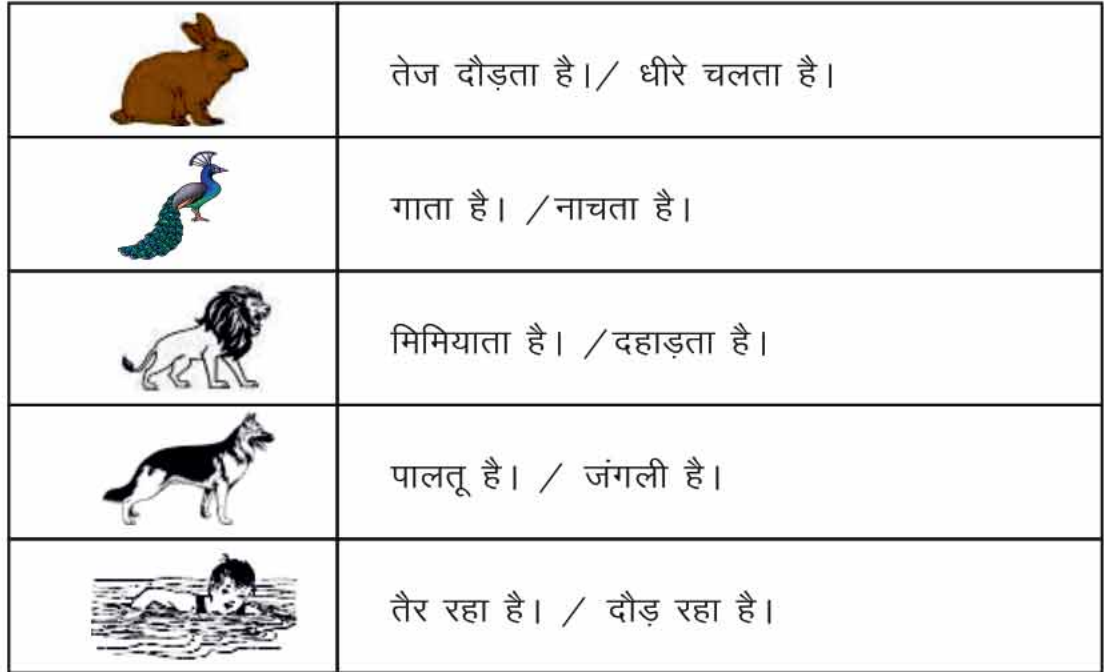 तेज दौड़ता है।/ धीरे चलता है।
गाता है। /नाचता है।
मिमियाता है। /दहाड़ता है।
पालतू है। / जंगली है।
तैर रहा है। / दौड़ रहा है।